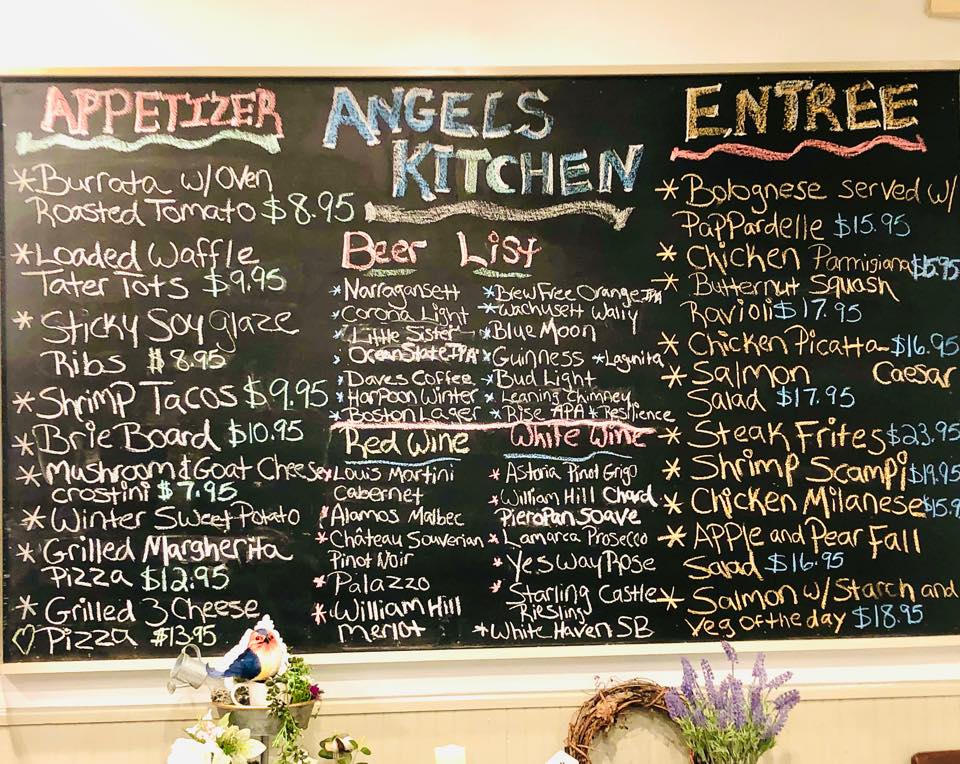 APPETIZER
*Burrata w/Oven
Roasted Tomato $8.95
*Loaded Waffle
Tater Tots $9.95
*Sticky Soy glaze
Ribs $8.95
*Shrimp Tacos $9.95
*Brie Board $10.95
*Mushroom & Goat Cheese
crostini $7.95
*Winter Sweet Potato
*Grilled Margherita
Pizza $12.95
*Grilled 3 Cheese
♡Pizza $13.95
ANGELS
KITCHEN
Beer List
*Narragansett
*Corona Light
*Little Sister
*Ocean State IPA
*Daves Coffee
*Harpoon Winter
*Boston Lager
*Brew Free Orange IPA
*Wachusett Wally
*Blue Moon
*Guinness *Lagunita
*Bud Light
*Leaning Chimney
*Rise APA *Resilience
Red Wine
*Louis Martini
Cabernet
*Alamos Malbec
*Château Souverian
Pinot Noir
*Palazzo
*William Hill
merlot
White Wine
*Astoria Pinot Grigo
*William Hill Chard
PieroPan Soave
*Lamarca Prosecco
*Yes Way Rose
*Starling Castle
Riesling
*White Haven SB
ENTRÉE
*Bolognese served w/
Pappardelle $15.95
*Chicken Parmigiana $15.95
*Butternut Squash
Ravioli $17.95
*Chicken Picatta $16.95
*Salmon Caesar
Salad $17.95
*Steak Frites $23.95
*Shrimp Scampi $19.95
*Chicken Milanese $15.9
*Apple and Pear Fall
Salad $16.95
*Salmon w/Starch and
Veg of the day $18.95